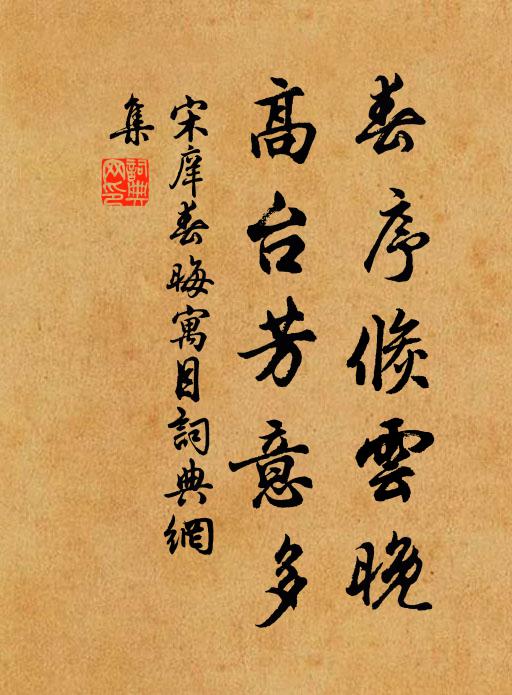 春序倏雲晚
高台芳意多
宋庠春晦寓目詞典網
集
詞典網印